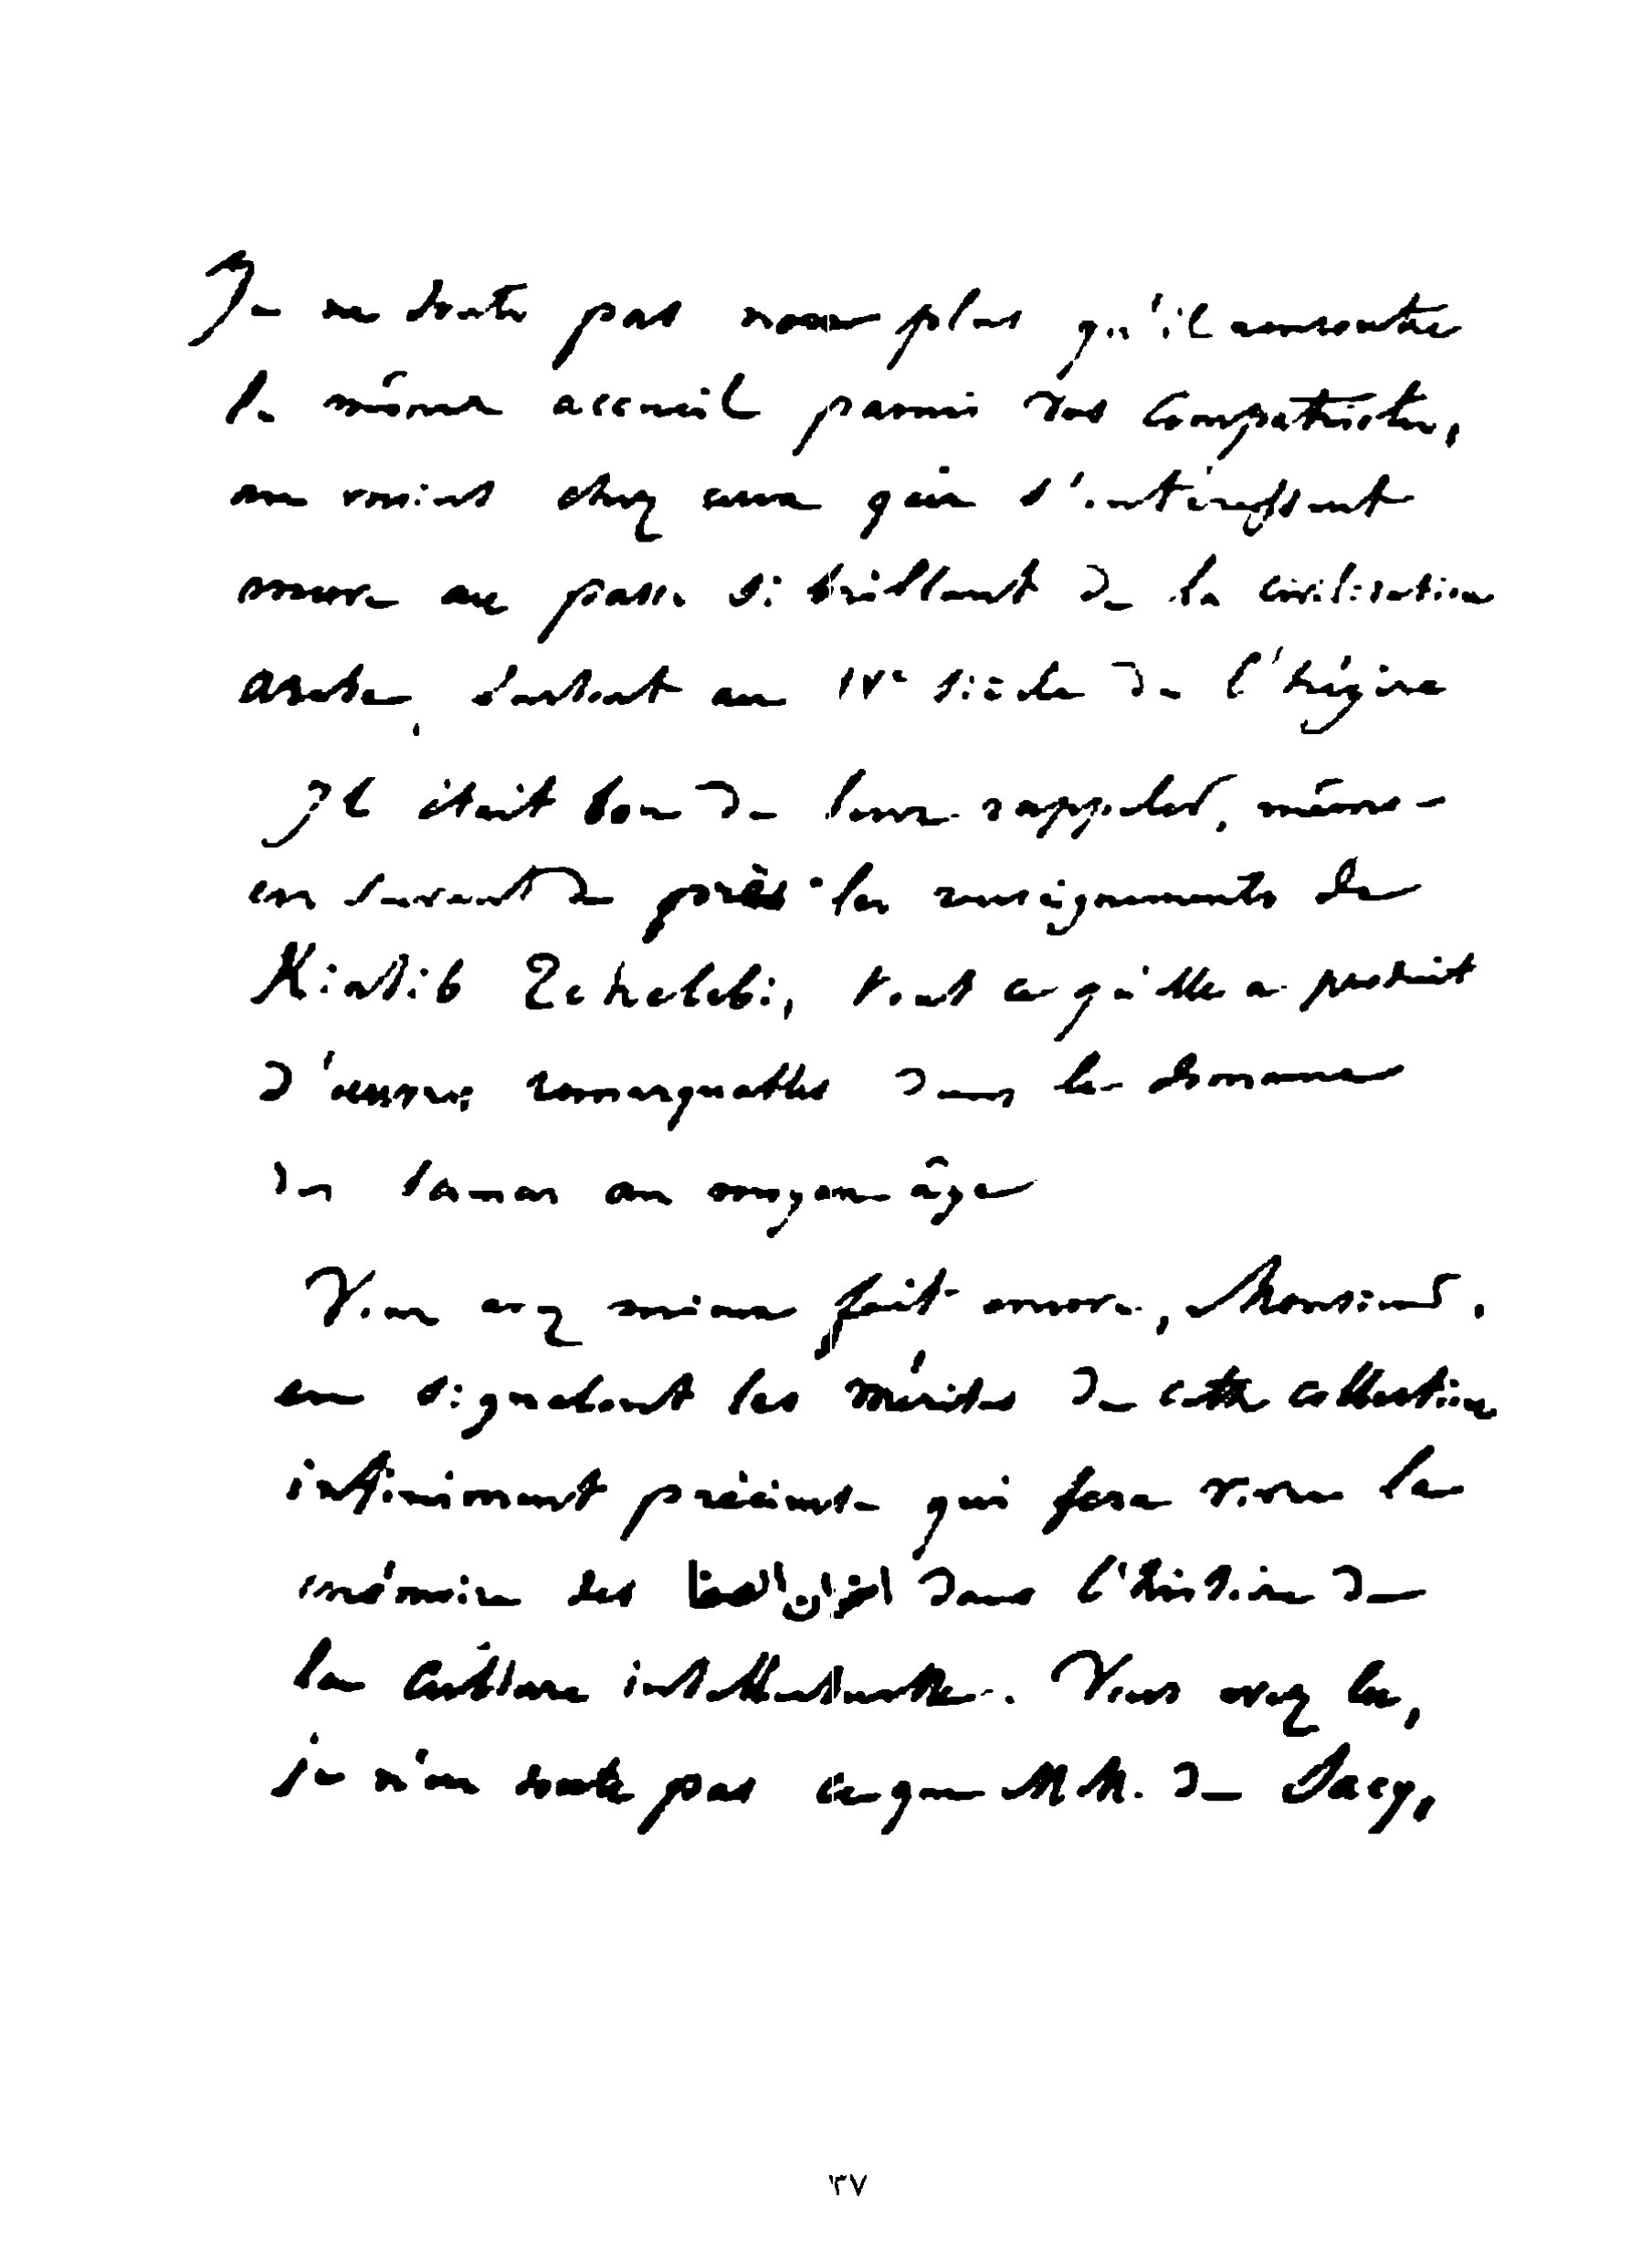 Je ne doute pas non plus qu'il rencontre
le même accueil parmi vos compatriotes,
au moins chez ceux qui s'intéressent
encore au passé si brillant de la civilisation
arabe, surtout au IVe siècle de l'hégire
Il était bon de leur rappeler, même
en suivant de près les renseignements de
Kiatib Tchelebi, tout ce qu'elle a produit
d'œuvres remarquables dans le domaine
des sciences au moyen âge
Vous avez mieux fait encore, Monsieur,
en signalant les mérites de cette collection
infiniment précieuse qui fera vivre la
mémoire des اخوان الصفا dans l'histoire de
la culture intellectuelle. Vous avez lu,
je n'en doute pas ce que MM. de Sacy,
٣٧